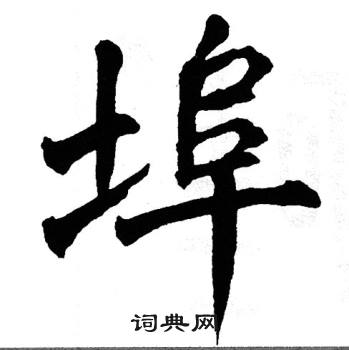 埠
词典网